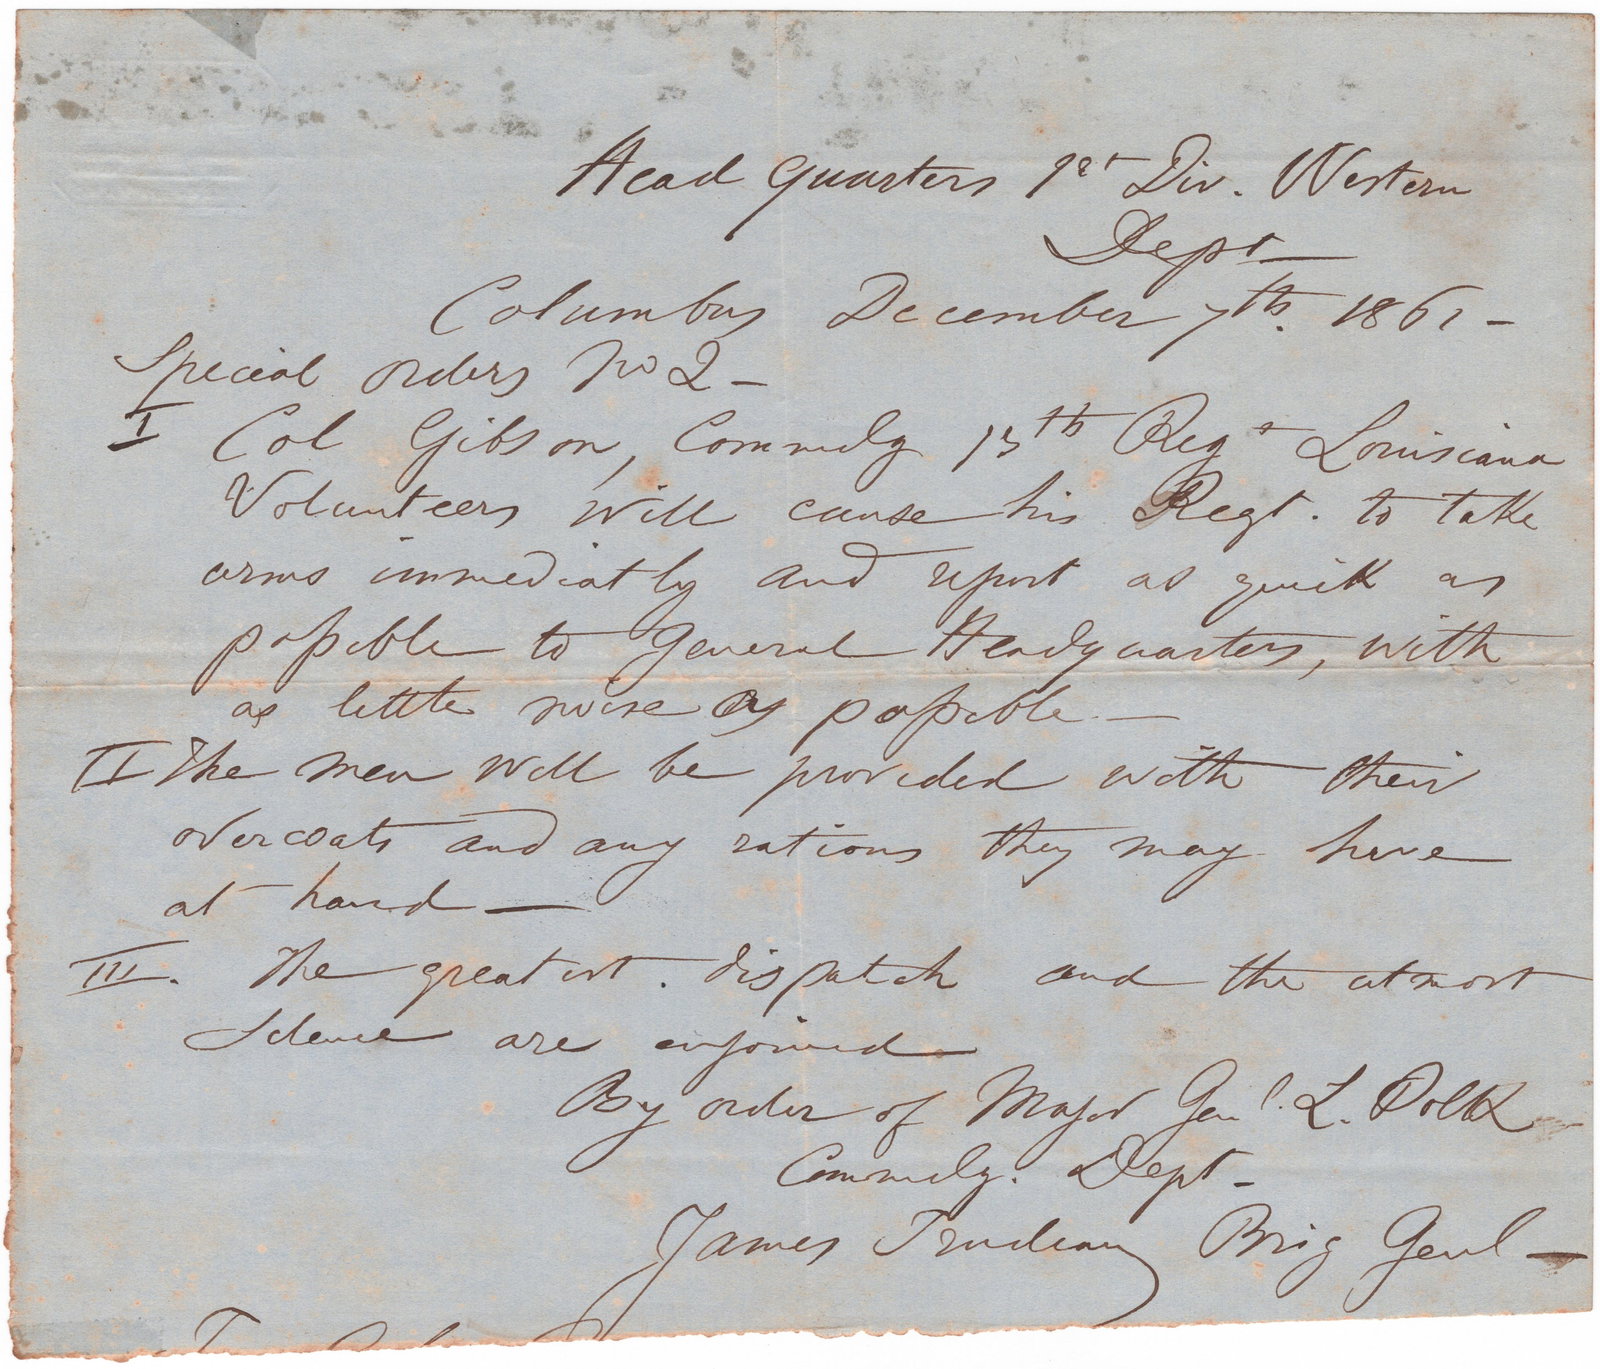 Head Quarters 1st Div. Western
Dept
Columbus December 7th. 1861 -
Special orders No 2 -
I Col Gibson, Commdg 13th Regt Louisiana
Volunteers will cause his Regt. to take
arms immediatly and report as quick as
possible to General Headquarters, with
as little noise as possible -
II The men will be provided with their
overcoats and any rations they may have
at hand -
III. The greatest dispatch and the utmost
Silence are enjoined
By order of Major Genl. L. Polk
Commdg. Dept -
James Trudeau Brig Genl -